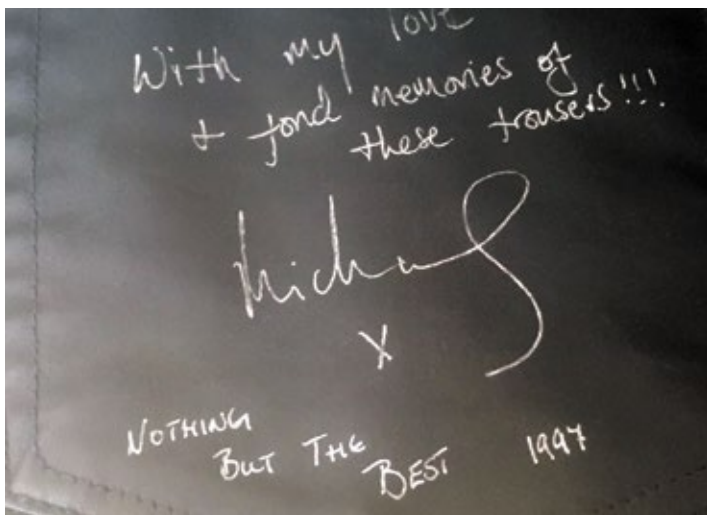 With my love
+ fond memories of
these trousers!!!
Michael
X
NOTHING
BUT THE
BEST 1997